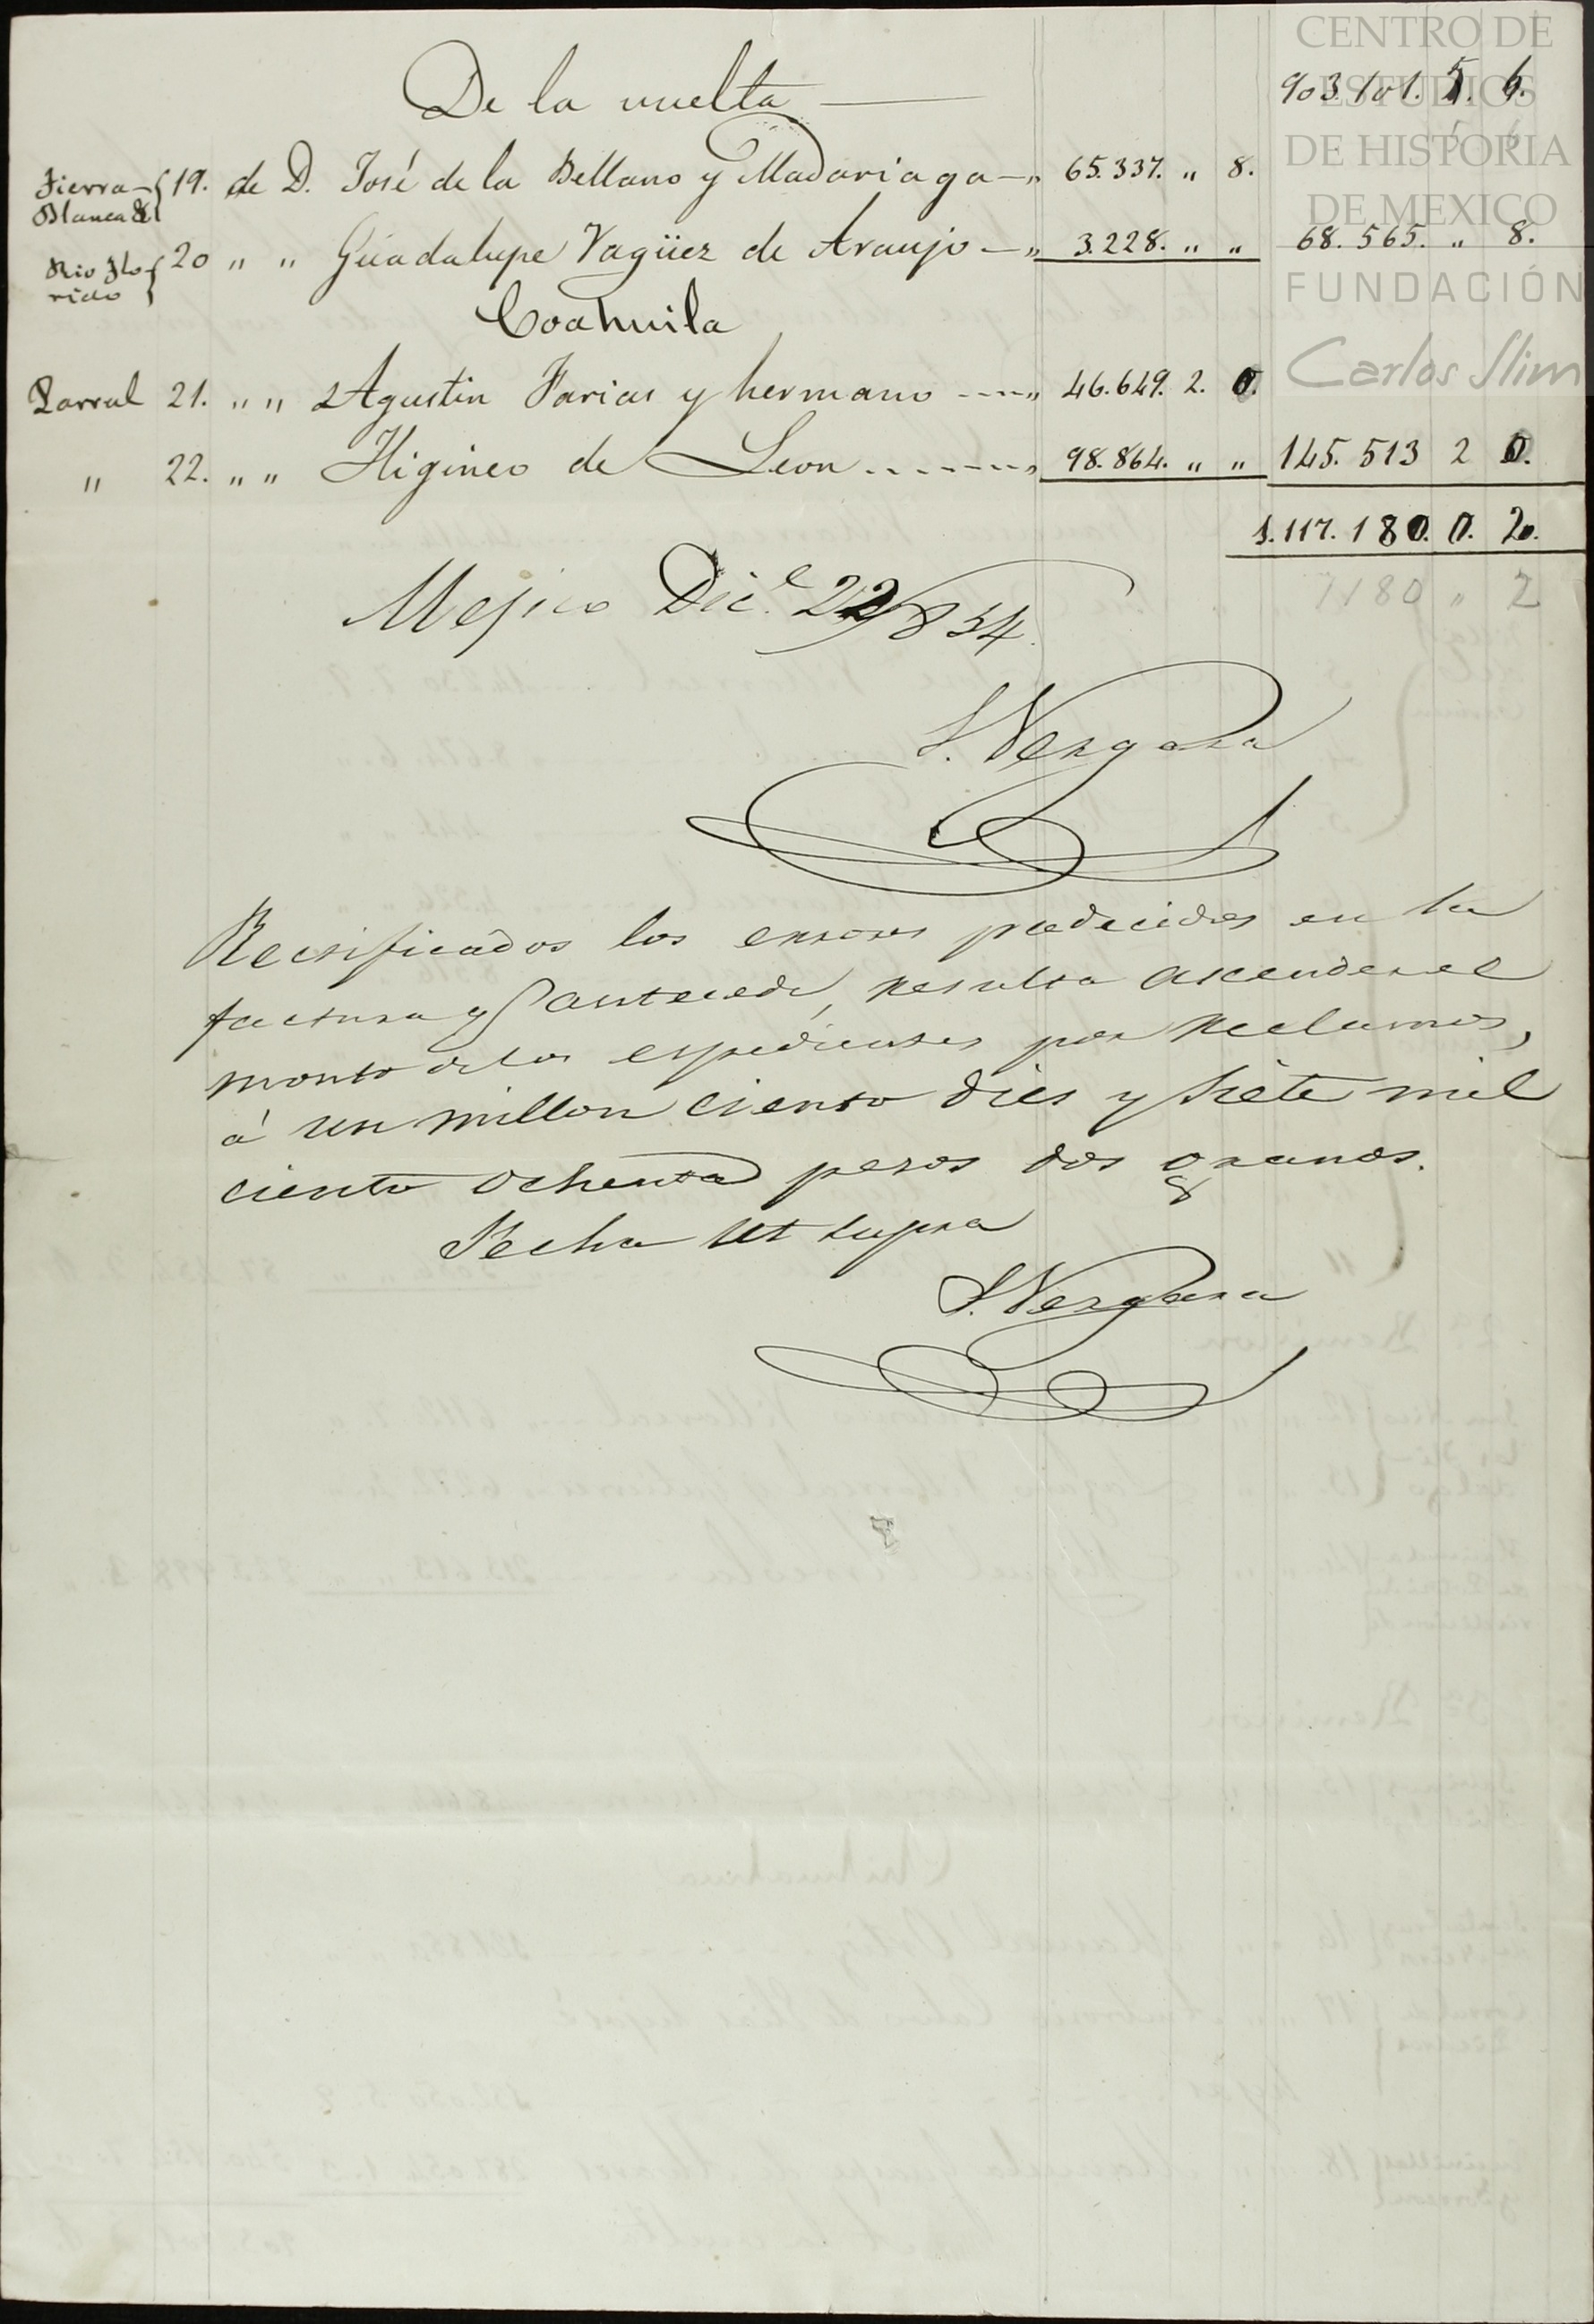 CENTRO DE
ESTUDIOS
DE HISTORIA
DE MEXICO
FUNDACIÓN
Carlos Slim
De la vuelta 903.101. 5. 6.
5 6
Tierra Blanca &ª 19. de D. José de la Bellano y Madariaga 65.337. " 8.
Rio Flo rido 20 " " Guadalupe Yagüez de Araujo " 3.228. " " 68.565. " 8.
Coahuila
Parral 21. " " Agustin Farias y hermano " 46.649. 2. 0.
" 22. " " Higineo de Leon " 98.864. " " 145.513 2 0.
1.117.180. 0. 2.
7180 " 2
Mejico Dic.e 22/854.
S. Vergara
Rectificados los errores padecidos en la
factura q antecede, resulta ascender el
monto de los espedientes por reclamos,
á un millon ciento dies y siete mil
ciento ochenta pesos dos granos.
Fecha ut supra
S. Vergara